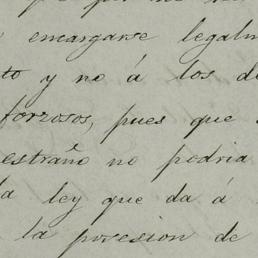 encargarse legalm
to y no á los de
forzosos, pues que
estraño no podria
la ley que da á
la posesion de